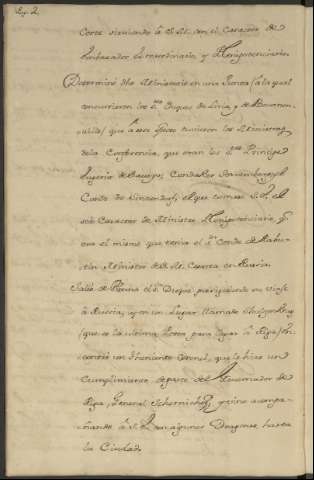 Corte viniendo à S. M. con el Caracter de
Embaxador Extraordinario, y Plenipotenciario.
Determinó dho Ministerio en una Junta (a la qual
concurrieron los S.res Duques de Liria, y de Bournon-
ville) que à este efecto tuvieron los Ministros
de la Conferencia, que eran los S.res Principe
Eugenio de Saboya, Conde
Conde de Sinzendorf, el que como S. E. el
solo Caracter de Ministro Plenipotenciario q.e
era el mismo que tenia el S.r Conde de Rabu-
tin Ministro de S. M. Cesarea en Rusia.
Salió de Viena el S.r Duque prosiguiendo su viaje
à Rusia, y en un Lugar llamado
(que es la ultima Posta para llegar à Riga) en-
contró un Theniente Coronel, que le hizo un
Cumplimiento de parte del Governador de
Riga, General y vino acompa-
ñando à S. E. con algunos Dragones hasta
la Ciudad.